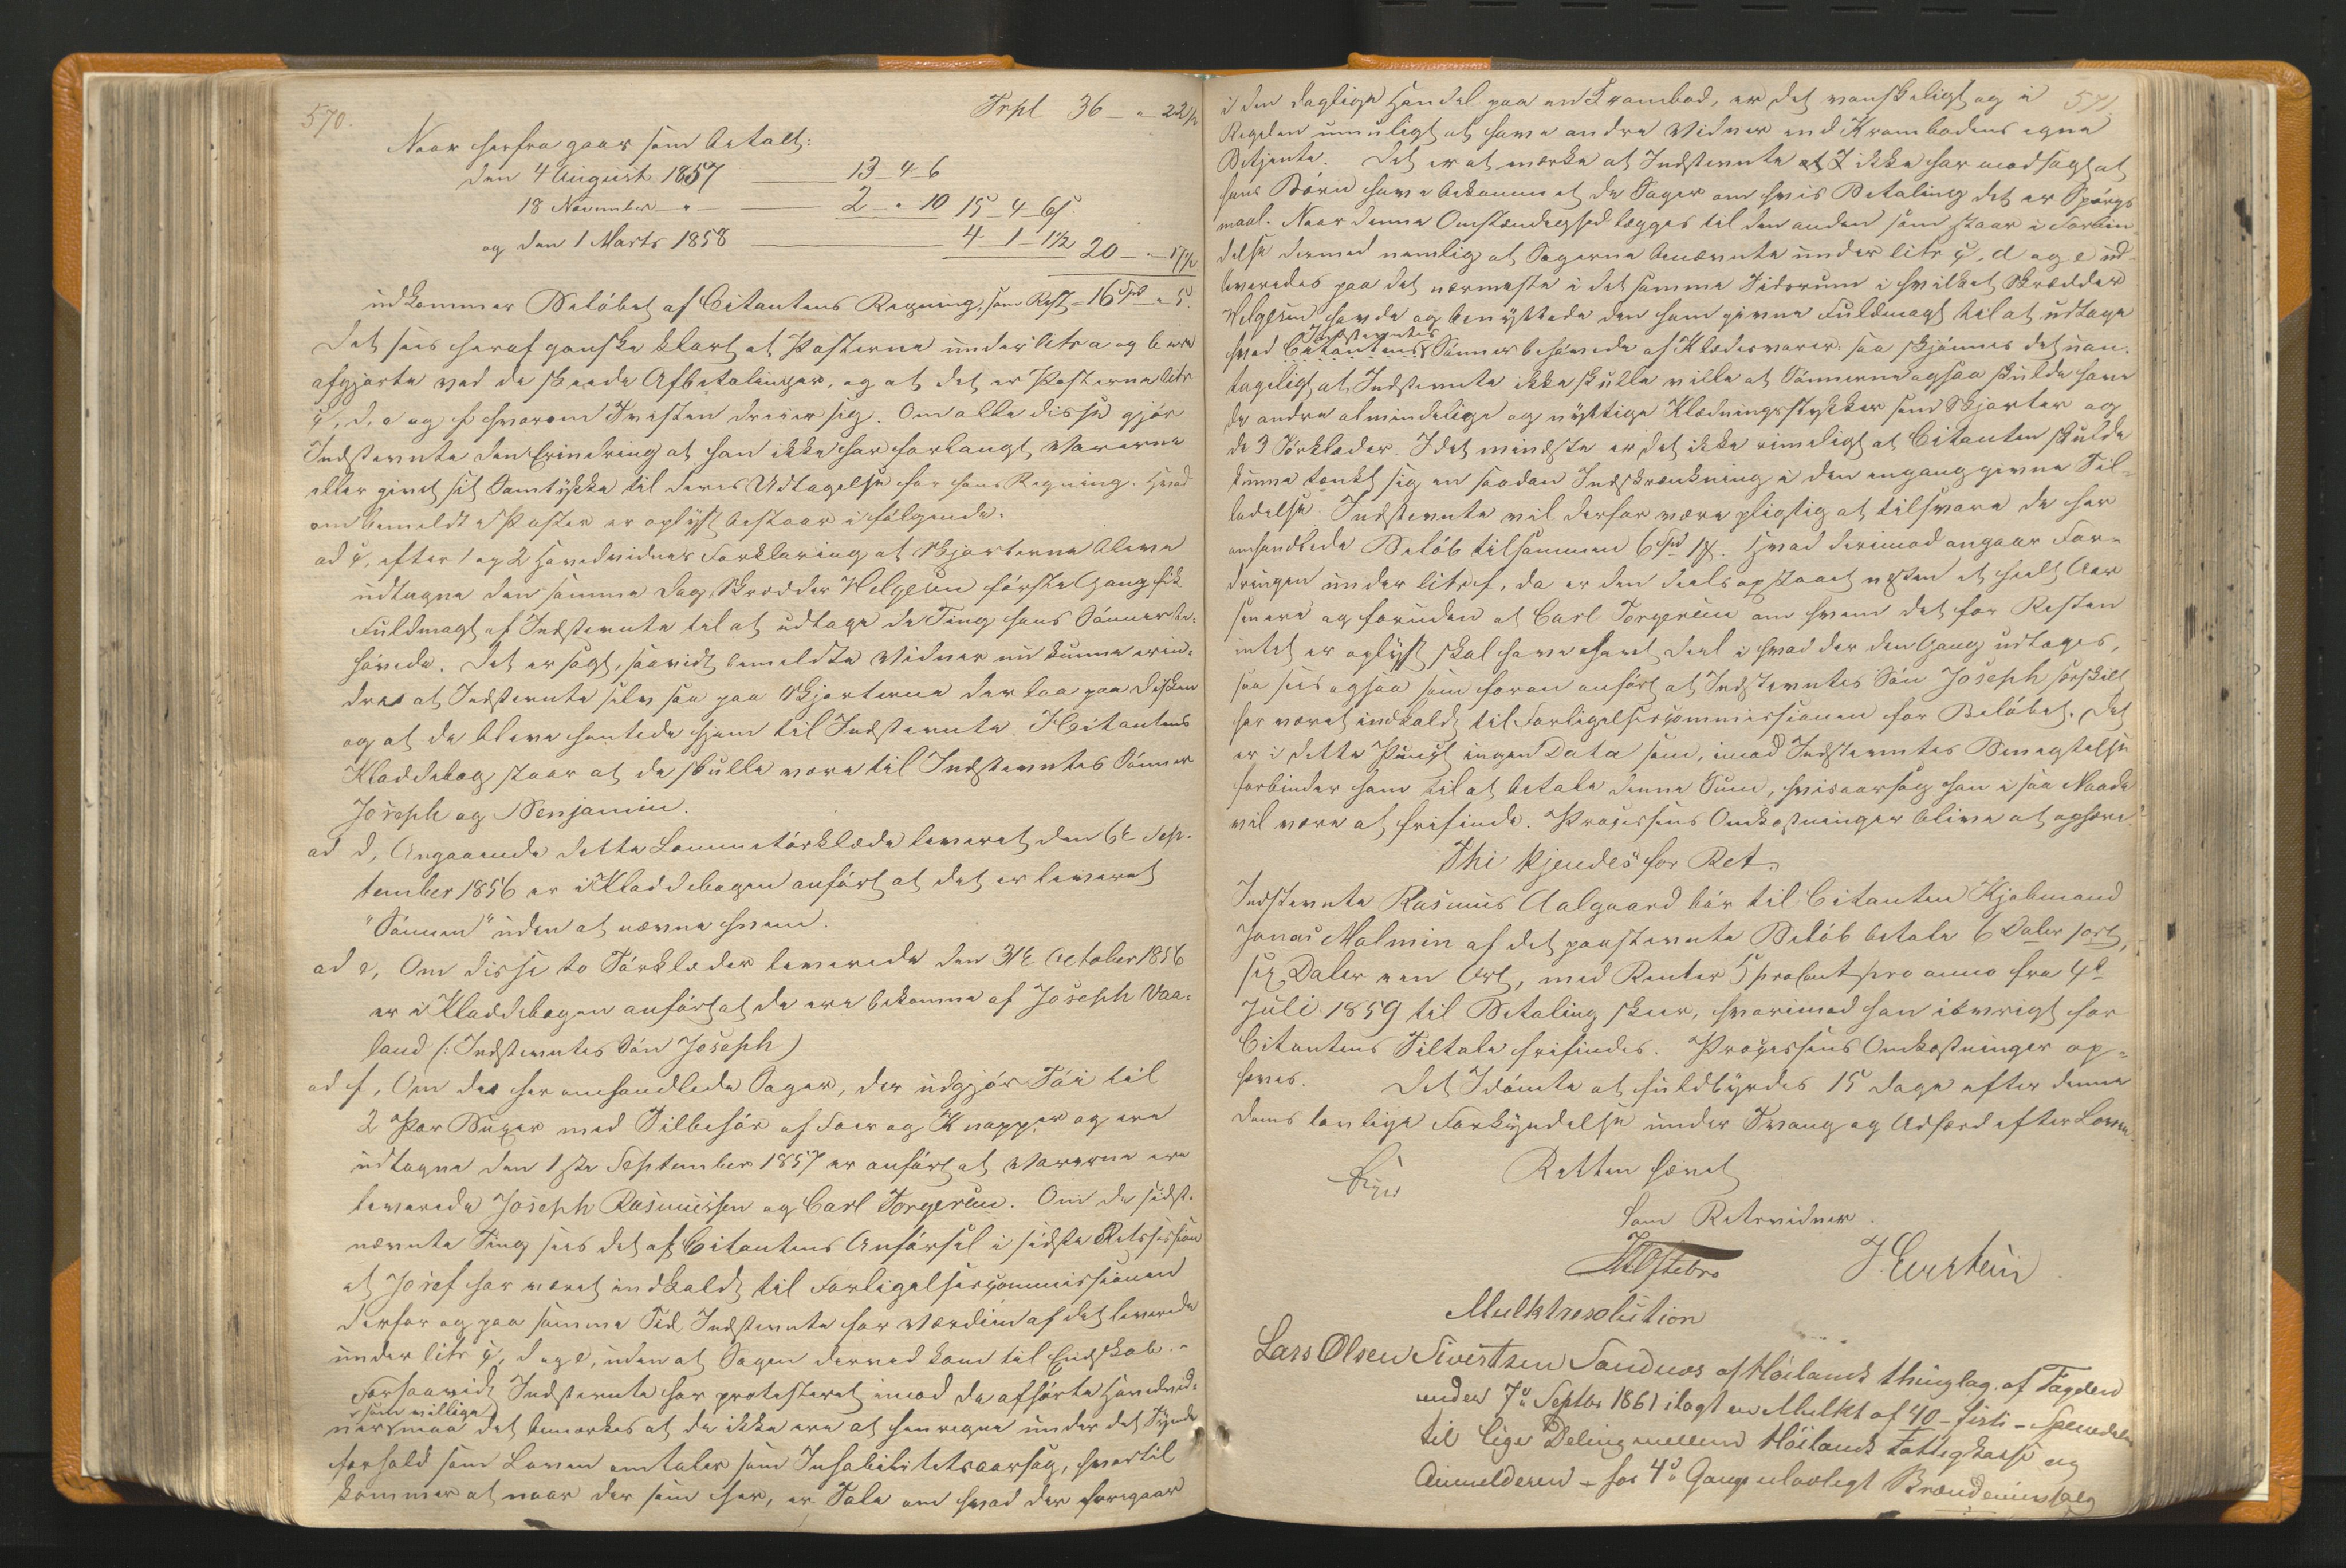 570.
Trpt 36 - " - 22½
Naar herfra gaar som betalt:
den 4 August 1857 13 - 4 - 6
18 November " 2 - " - 10 15 - 4 - 16
og den 1 Marts 1858 4 - 1 - 1½ 20 - " - 17½
udkommer Beløbet af Citantens Regning, som Rest = 16 Spd " 5.
Det sees heraf ganske klart at Posterne under litr a og b ere
afgjorte ved de skeede Afbetalinger, og at det er Posterne litr
c, d, e og f hvorom Tvisten dreier sig. Om alle disse gjør
Indstevnte den Erindring at han ikke har forlangt Varerne
eller givet sit Samtykke til deres Udtagelse for hans Regning. Hvad
om bemeldte Poster er oplyst bestaar i følgende:
ad c, efter 1 og 2 Hovedvidners Forklaring at Skjorterne bleve
udtagne den samme Dag Skrædder Helgesen første Gang fik
Fuldmagt af Indstevnte til at udtage de Ting hans Sønner be-
høvede. Det er sagt, saavidt bemeldte Vidner nu kunne erin-
dres at Indstevnte selv saa paa Skjorterne der laa paa Disken
og at de bleve hentede hjem til Indstevnte. I Citantens
Kladdebog staar at de skulle være til Indstevntes Sønner
Joseph og Benjamin.
ad d, Angaaende dette Lommetørklæde leveret den 6te Sep-
tember 1856 er i Kladdebogen anført at det er leveret
"Sønnen" uden at nævne hvem.
ad e, Om disse to Tørklæder leverede den 31te October 1856
er i Kladdebogen anført at de ere bekomne af Joseph Vaa-
land (: Indstevntes Søn Joseph)
ad f, Om de her omhandlede Sager, der udgjør Tøi til
2 Par Buxer med Tilbehør af Foer og Knapper og ere
udtagne den 1ste September 1857 er anført at Varerne ere
leverede Joseph Rasmussen og Carl Torgersen. Om de sidst-
nævnte Ting sees det af Citantens Anførsel i sidste Retssession
at Josef har været indkaldt til Forligelsescommissionen
derfor og paa samme Tid Indstevnte for Værdien af det leverede
under litr c, d og e, uden at Sagen derved kom til Endskab.
Forsaavidt Indstevnte har protesteret imod de afhørte Hovedvid-
som villige
ner maa det bemærkes at de ikke ere at henregne under det Tynde
forhold som Loven omtaler som Inhabilitetsaarsag, hvortil
kommer at naar der som her, er Tale om hvad der foregaar
571.
i den daglige Handel paa en Krambod, er det vanskeligt og i
Regelen umuligt at have andre Vidner end Krambodens egne
Betjente. Det er at mærke at Indstevnte ikke har modsagt at
hans Børn have bekommet de Sager om hvis Betaling det er Spørgs
maal. Naar denne Omstændighed lægges til den anden som staar i Forbin
delse dermed nemlig at Sagerne benævnte under litr c, d og e ud-
leveredes paa det nærmeste i det samme Tidsrum i hvilket Skrædder
Helgesen havde og benyttede den ham givne Fuldmagt til at udtage
Indstevntes
hvad Citantens Sønner behøvede af Klædesvarer. saa skjønnes det uan-
tageligt at Indstevnte ikke skulle ville at Sønnerne ogsaa skulde have
de andre almindelige og nyttige Klædningsstykker som Skjorter og
de 3 Tørklæder. I det mindste er det ikke rimeligt at Citanten skulde
kunne tænkt sig en saadan Indskrænkning i den engang givne Til-
ladelse. Indstevnte vil derfor være pligtig at tilsvare de her
omhandlede Beløb tilsammen 6 Spd 1 ort. Hvad derimod angaar For-
dringen under litr f, da er den deels opstaaet næsten et heelt Aar
senere og foruden at Carl Torgersen om hvem det for Resten
intet er oplyst skal have havt Deel i hvad der den Gang udtoges,
saa sees ogsaa som foran anført at Indstevntes Søn Joseph særskilt
har været indkaldt til Forligelsescommissionen for Beløbet. Det
er i dette Punct ingen Data som, imod Indstevntes Benegtelse
forbinder ham til at betale denne Sum, hvisaarsag han i saa Maade
vil være at frifinde. Processens Omkostninger blive at ophæve.
Thi kjendes for Ret.
Indstevnte Rasmus Aalgaard bør til Citanten Kjøbmand
Jonas Malmin af det paastevnte Beløb betale 6 Daler 1 ort,
sex Daler een Ort, med Renter 5 procent pro anno fra 4de
Juli 1859 til Betaling skeer, hvorimod han iøvrigt for
Citantens Tiltale frifindes. Processens Omkostninger op-
hæves. Det Idømte at fuldbyrdes 15 Dage efter denne
Doms lovlige Forkyndelse under Tvang og Adfærd efter Loven.
Retten hævet
Som Retsvidner.
Østebro J. Evertsen
Mulktresolution
Lars Olsen Sivertsen Sandnes af Høilands thinglag. af Fogden
under 7de Septbr 1861 ilagt en Mulkt af 40 - firti - Speciedaler
til lige Deling mellem Høilands Fattigkasse og
Anmelderen - for 4de Gangs ulovligt Brændeviinssalg